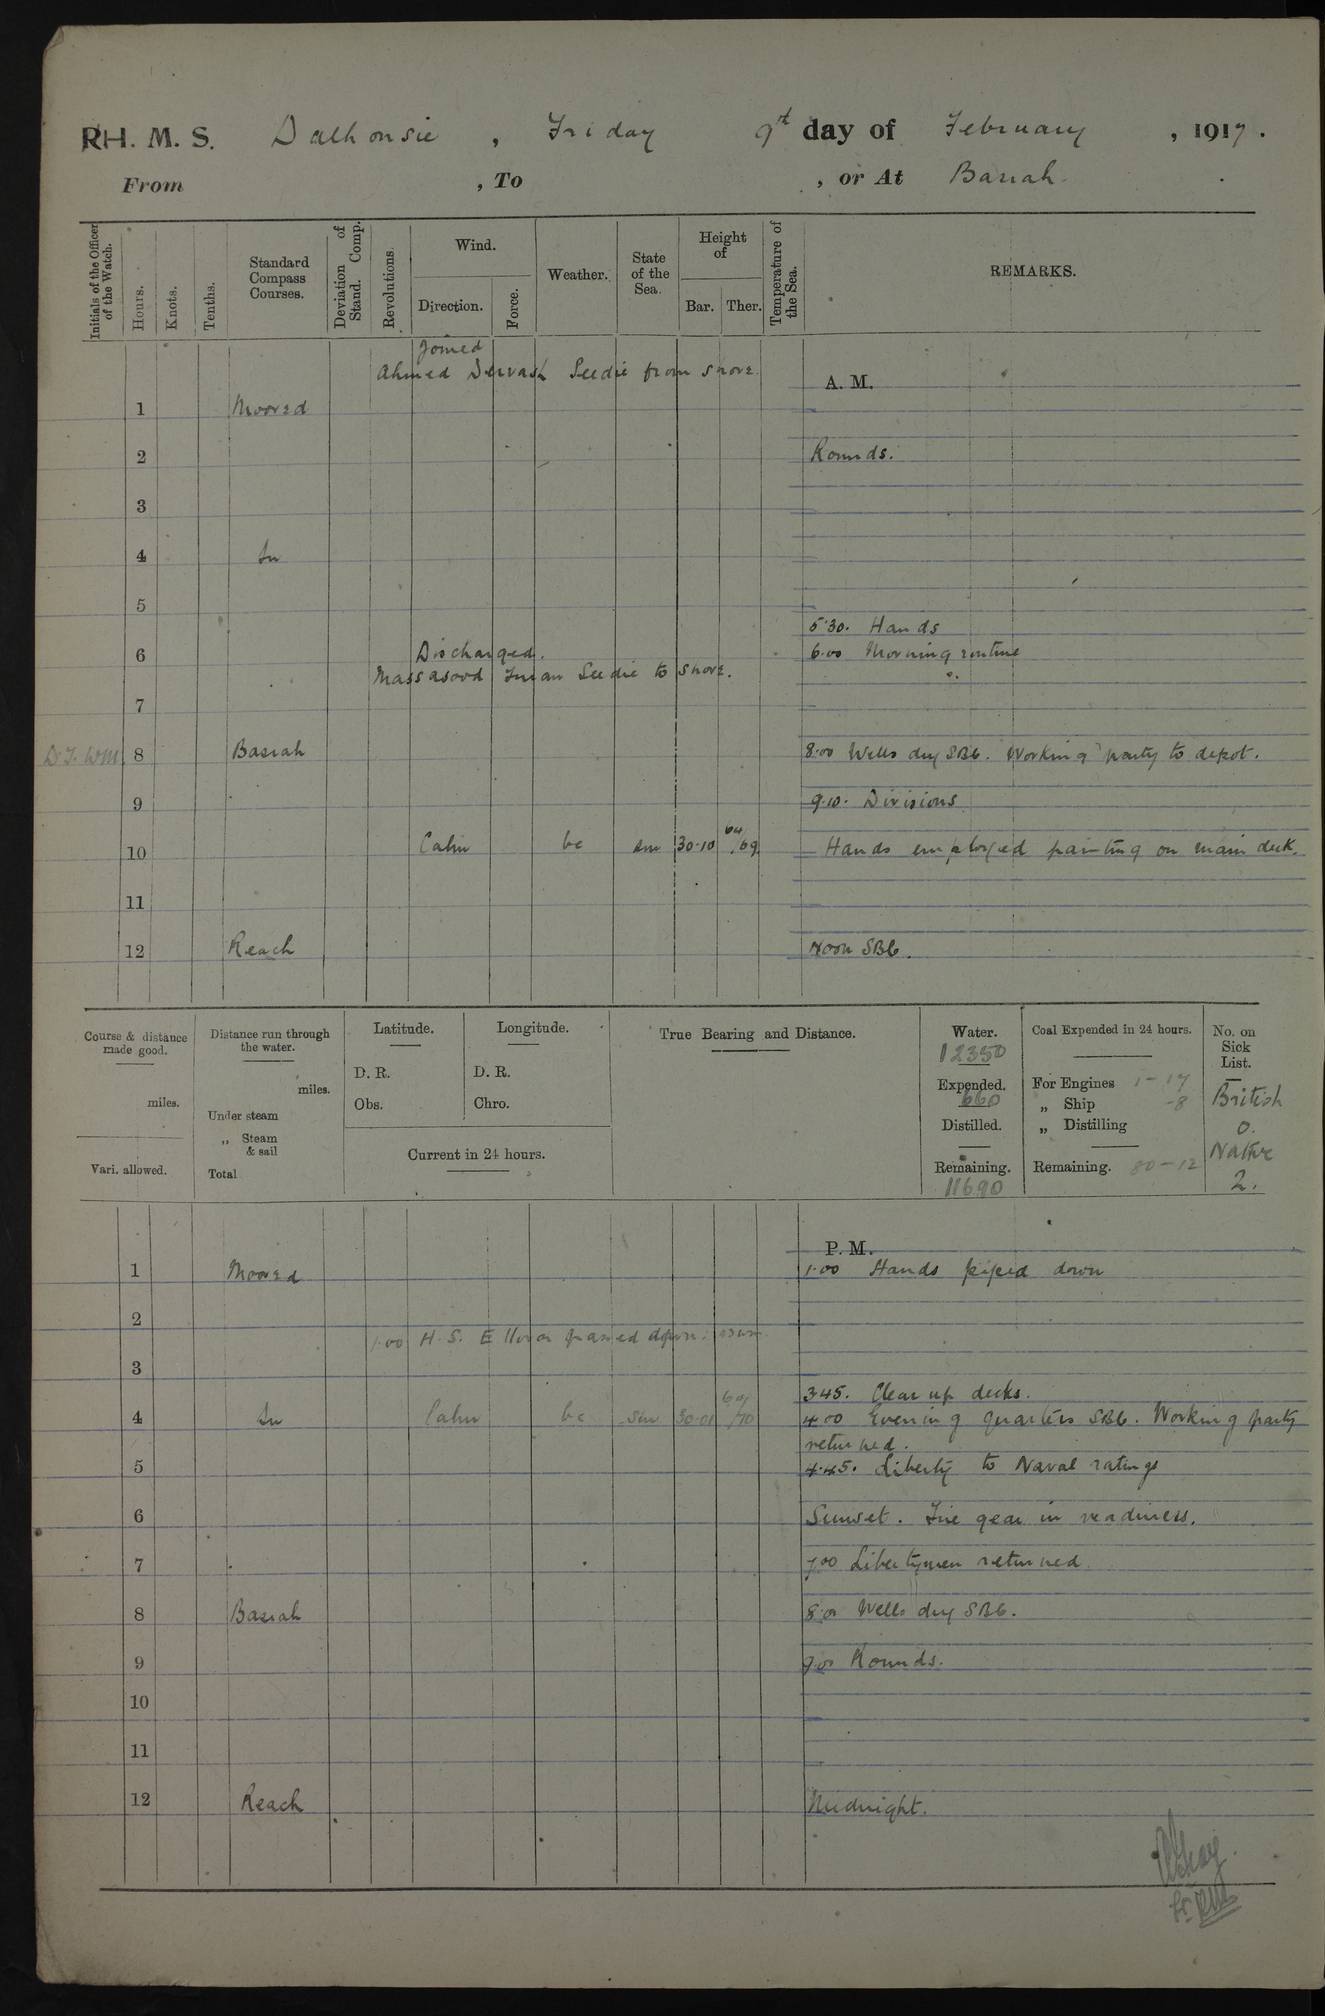 RH. M. S. Dalhousie , Friday 9th day of February , 1917 .
From , To , or At Basrah .
Initials of the Officer of the Watch.
Hours.
Knots.
Tenths.
Standard Compass Courses.
Deviation of Stand. Comp.
Revolutions.
Wind.
Direction.
Force.
Weather.
State of the Sea.
Height of
Bar. Ther.
Temperature of the Sea.
REMARKS.
Joined
Ahmed Dervash Seedie from shore.
A. M.
1 Moored
2 Rounds.
3
4 In
5
5.30. Hands
6 Discharged. 6.00 Morning routine
Massasood Seedie to shore.
7
8 Basrah 8.00 Wells dry SBb. Working party to depot.
9 9.10. Divisions
10 Calm bc sm 30.10 64/69 Hands employed painting on main deck.
11
12 Reach Noon SBb.
Course & distance made good.
miles.
Vari. allowed.
Distance run through the water.
miles.
Under steam
„ Steam & sail
Total
Latitude.
D. R.
Obs.
Longitude.
D. R.
Chro.
Current in 24 hours.
True Bearing and Distance.
Water.
12350
Expended.
660
Distilled.
Remaining.
11690
Coal Expended in 24 hours.
For Engines 1-17
„ Ship -8
„ Distilling
Remaining. 80-12
No. on Sick List.
British
0.
Native
2.
P. M.
1 Moored 1.00 Hands piped down
2
1.00 H.S. Ellora passed down.
3
3.45. Clear up decks.
4 In Calm bc sm 30.01 /70 4.00 Evening quarters SBb. Working party
returned.
5 4.45. Liberty to Naval ratings
6 Sunset. Fire gear in readiness.
7 7.00 Libertymen returned.
8 Basrah 8.00 Wells dry SBb.
9 9.00 Rounds.
10
11
12 Reach Midnight.